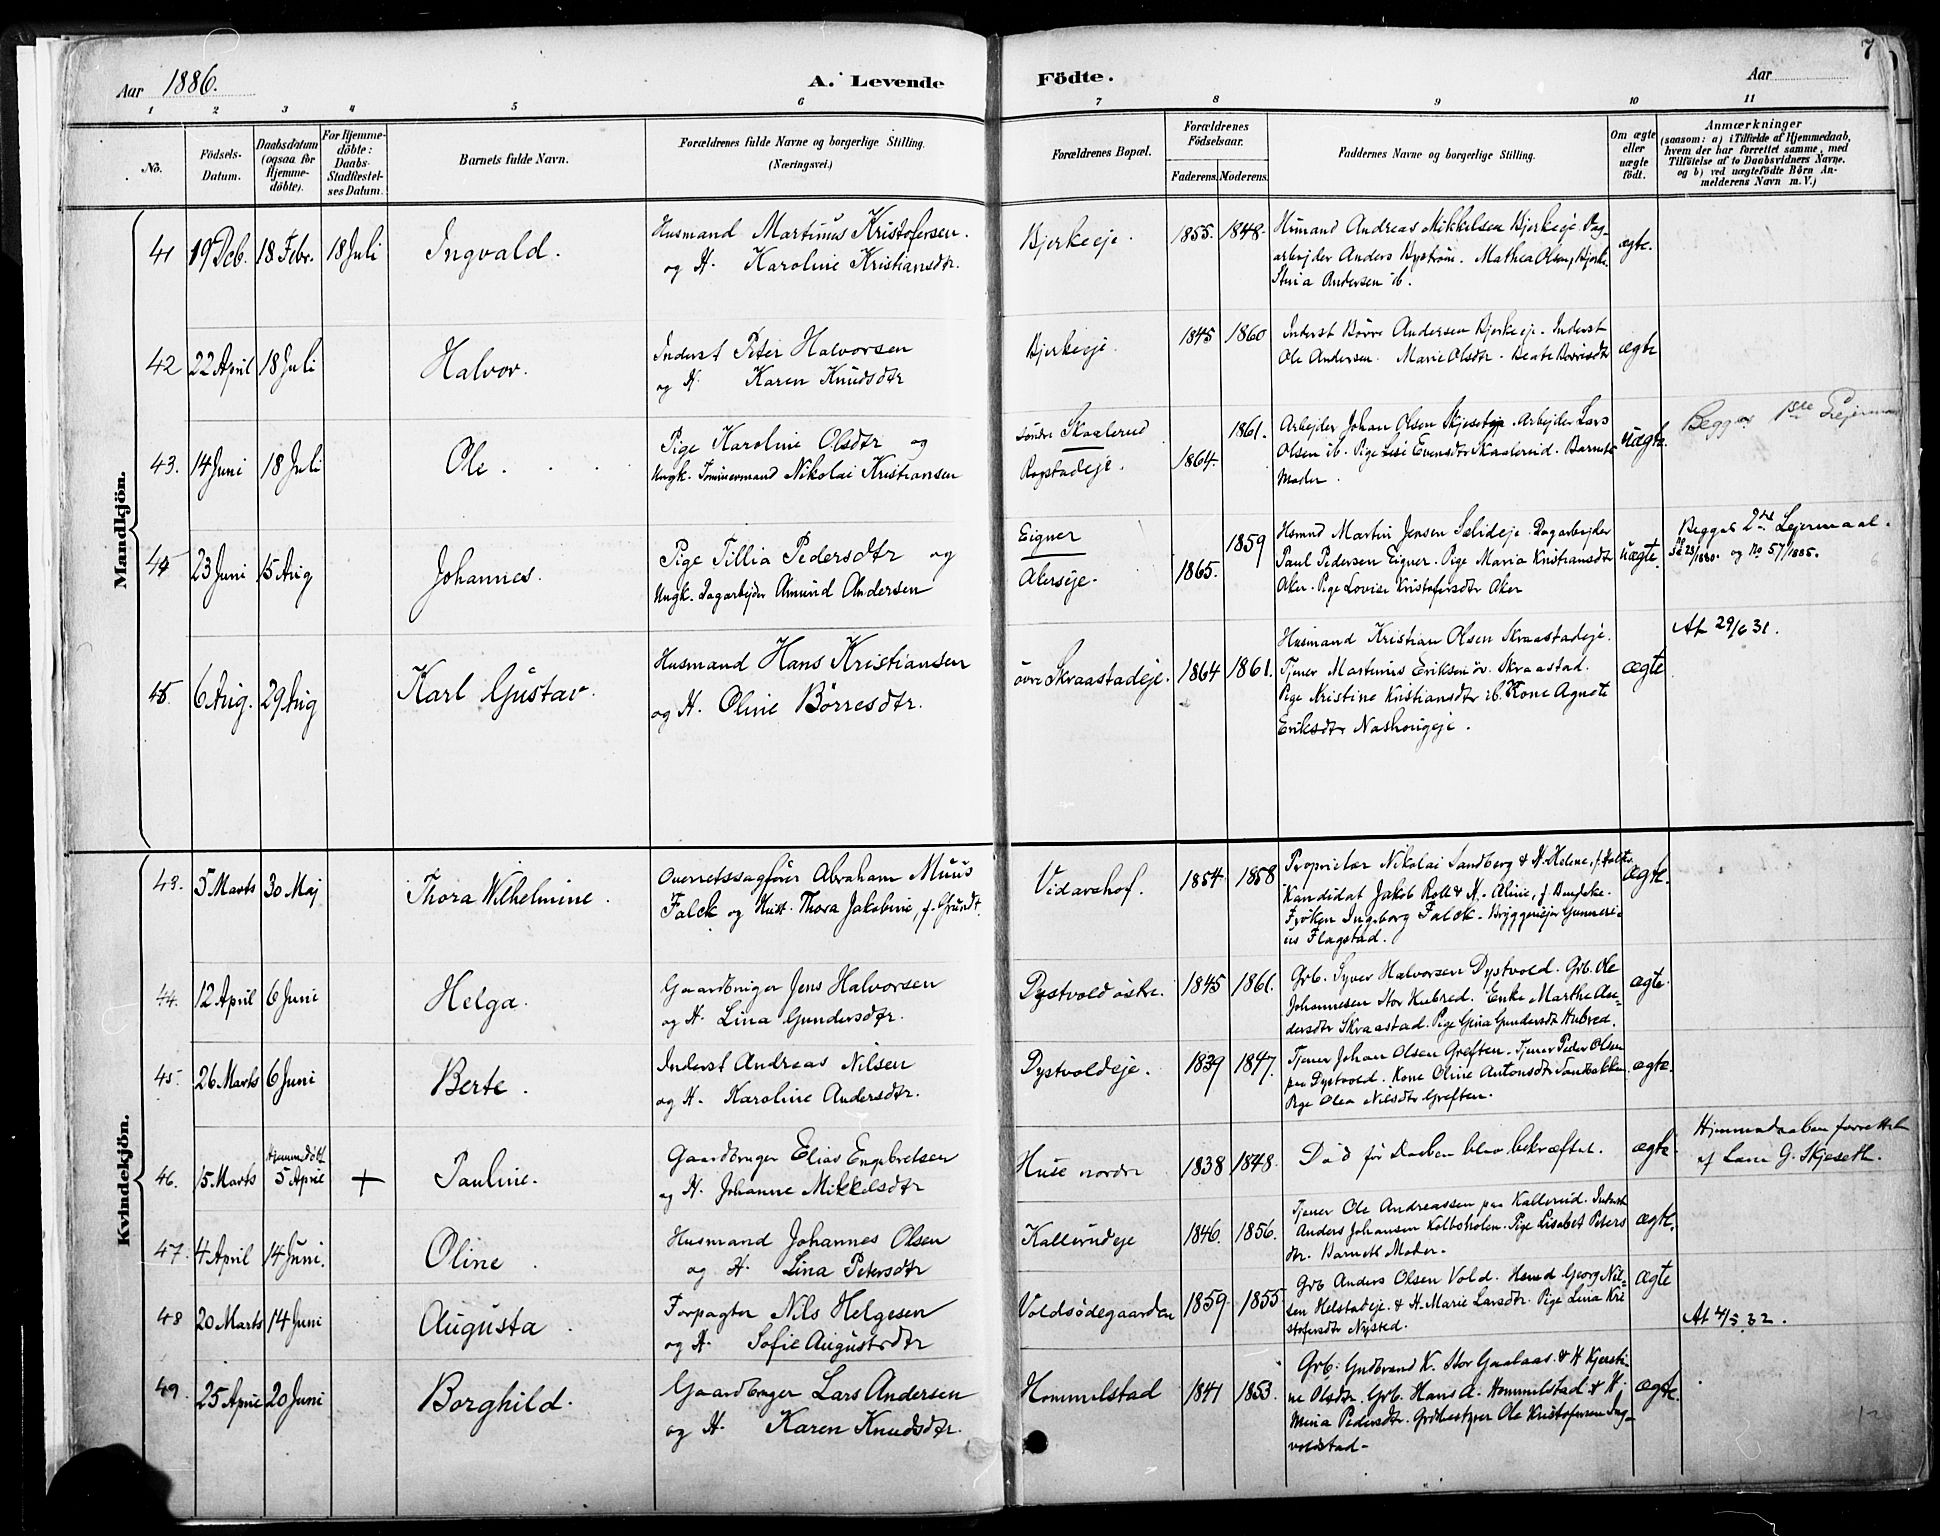 7
Aar 1886.
A. Levende
Födte.
Aar
1 2 3 4 5 6 7 8 9 10 11
No.
Födsels-
Datum.
Daabsdatum
(ogsaa for
Hjemme-
döbte).
For Hjemme-
döbte:
Daabs-
Stadfæstel-
ses Datum.
Barnets fulde Navn.
Forældrenes fulde Navne og borgerlige Stilling.
(Næringsvei.)
Forældrenes Bopæl.
Forældrenes
Födselsaar.
Faderens. Moderens.
Faddernes Navne og borgerlige Stilling.
Om ægte
eller
uægte
födt.
Anmærkninger
(saasom: a) i Tilfælde af Hjemmedaab,
hvem der har forrettet samme, med
Tilföielse af to Daabsvidners Navne.
og b) ved uægtefödte Börn An-
melderens Navn m. V.)
Mandkjön.
41 19 Dcb. 18 Febr. 18 Juli Ingvald.
Husmand Martinus Kristofersen.
og H. Karoline Kristiansdtr.
Bjerkeeje. 1855. 1848.
Husmand Andreas Mikkelsen Bjerkeeje. Dag-
arbejder Anders Byström. Mathea Olsen, Bjerke.
Stina Andersen ib.
ægte.
42 22 April 18 Juli Halvor.
Inderst Peter Halvorsen
og H. Karen Knudsdtr
Bjerkeeje. 1845 1860
Inderst Börre Andersen Bjerkeeje. Inderst
Ole Andersen. Marie Olsdtr. Beate Börresdtr
ægte
43. 14 Juni 18 Juli Ole.
Pige Karoline Olsdtr og
Ungk. Tömmermand Nikolai Kristiansen
söndre Skaalerud
Rogstadeje.
1864. 1861.
Arbejder Johan Olsen Skjeset. Arbejder Lars
Olsen ib. Pige Lise Evensdtr Skaalerud. Barnets
Moder.
uægte.
Begges 1ste Lejermaal
44 23 Juni 15 Aug Johannes.
Pige Tillia Pedersdtr og
Ungk. Dagarbejder Amund Andersen
Eigner
Akerseje.
1865. 1859
Hsmnd Martin Jensen Sælideje. Dagarbejder
Paul Pedersen Eigner. Pige Maria Kristiansdtr
Aker. Pige Lovise Kristofersdtr Aker
uægte.
Begges 2det Lejermaal.
23/1880. og No 57/1885.
45. 6 Aug. 29 Aug Karl Gustav.
Husmand Hans Kristiansen
og H. Oline Börresdtr.
övre Skraastadeje. 1864 1861.
Husmand Kristian Olsen Skraastadeje.
Tjener Martinus Eriksen öv. Skraastad.
Pige Kristine Kristiansdtr ib. Kone Agnete
Eriksdtr Nashougeje.
ægte
At 29/6 31.
Kvindekjön.
43. 5 Marts 30 Maj Thora Wilhelmine.
Overretssagförer Abraham Muus
Falck og Hust. Thora Jakobine, f. Grundt.
Vidarshof. 1854 1858
Proprietær Nikolai Sandberg & H. Helene, f. Holter.
Kandidat Jakob Roll & H. Aline, f. Bendeke.
Fröken Ingeborg Falck. Bryggeriejer Gunneri-
us Flagstad.
ægte.
44. 12 April 6 Juni Helga.
Gaardbruger Jens Halvorsen
og H. Lina Gundersdtr.
Dystvold östre. 1845 1861.
Grb. Syver Halvorsen Dystvold. Grb. Ole
Johannesen Stor Hubred. Enke Marthe An-
dersdtr Skraastad. Pige Gina Gundersdtr Hubred.
ægte.
45. 26 Marts 6 Juni Berte.
Inderst Andreas Nilsen
og H. Karoline Andersdtr.
Dystvoldeje. 1839 1847.
Tjener Johan Olsen Greften. Tjener Peder Olsen
paa Dystvold. Kone Oline Antonsdtr Sandbakken.
Pige Olea Nilsdtr Greften.
ægte.
46. 15 Marts Hjemmedöbt 5 April + Pauline.
Gaardbruger Elias Engebretsen
og H. Johanne Mikkelsdtr
Huse nordre 1838 1848.
Död för Daaben blev bekræftet.
ægte
Hjemmedaaben forrettet
af Lars G. Skjeseth.
47. 4 April 14 Juni. Oline.
Husmand Johannes Olsen
og H. Lina Petersdtr
Kallerudeje 1846. 1856.
Tjener Ole Andreassen paa Kallerud. Inderst
Anders Johansen Kolbsholen. Pige Lisabet Peters
dtr. Barnets Moder.
ægte.
48 20 Marts 14 Juni Augusta.
Forpagter Nils Helgesen
og H. Sofie Augustsdtr
Voldsödegaarden 1859. 1855
Grb Anders Olsen Vold. Hsmd Georg Nil-
sen Helstadeje. & H. Marie Larsdtr. Pige Lina Kri
stofersdtr Nysted.
ægte
At 4/5 32.
49. 25 April 20 Juni Borghild.
Gaardbruger Lars Andersen
og H. Karen Knudsdtr.
Hommelstad 1841 1853.
Grb. Gudbrand K. Stor Gaalaas. & H Kjersti-
ne Olsdtr. Grb. Hans A. Hommelstad & H.
Mina Pedersdtr. Grdbestyrer Ole Kristofersen Ing-
voldstad.
ægte.